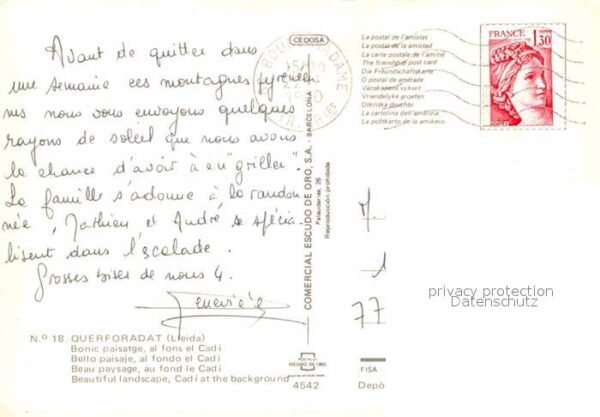 Avant de quitter dans
une semaine ces montagnes pyrénéen
nes nous vous envoyons quelques
rayons de soleil que nous avons
la chance d'avoir à en "griller".
La famille s'adonne à la randon
née, Mathieu et André se spécia
lisent dans l'escalade.
Grosses bises de nous 4.
Geneviève
N.º 18 QUERFORADAT (Lleida)
Bonic paisatge, al fons el Cadí
Bello paisaje, al fondo el Cadí
Beau paysage, au fond le Cadí
Beautiful landscape, Cadí at the background
CEDOSA
COMERCIAL ESCUDO DE ORO, S.A. - BARCELONA
Palaudarias, 26
Reproducción prohibida
POSTALES
ESCUDO DE ORO
4542
BOU MADAME
La postal de l'amistat
La postal de la amistad
La carte postale de l'amitié
The friendship post card
Die Freundschaftskarte
O postal da amizade
Vänskapens vykort
Vriendelijke groeten
La cartolina dell'amicizia
La poŝtkarto de la amikeco
FRANCE
1,30
77
privacy protection
Datenschutz
FISA
Depó